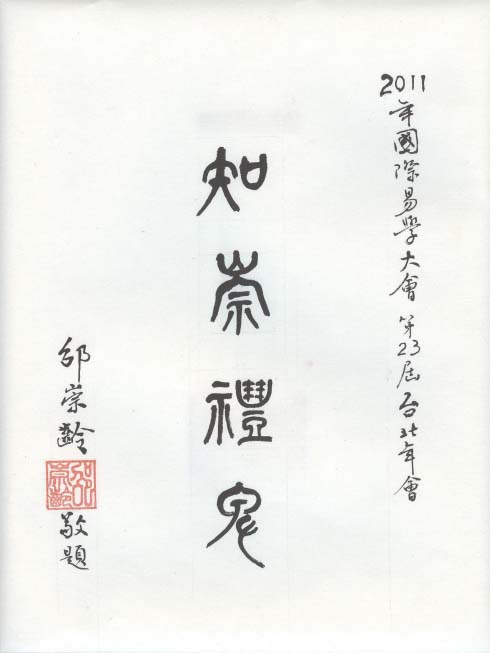 2011年國際易學大會 第23屆台北年會
知崇禮卑
邵崇齡 敬題